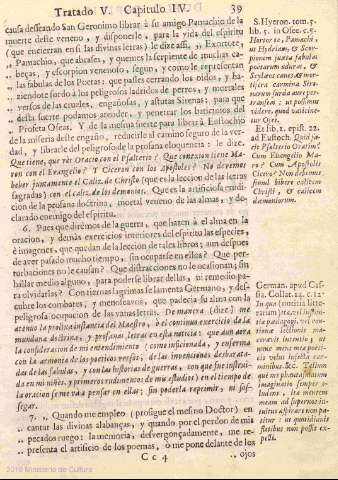 Tratado V. Capitulo IV. 39
causa desseando San Geronimo librar à su amigo Pamachio de la
muerte deste veneno, y disponerle, para la vida del espiritu
(que encierran en si las divinas letras) le dize assi, Exortote,
Pamachio, que abrases, y quemes la serpiente de muchas ca-
beças, y escorpion venenoso, segun, y como se representa en
las fabulas de los Poetas: que passes cerrando los oidos, y ha-
ziendote sordo à los peligrosos ladridos de perros, y mortales
versos de las crueles, engañosas, y astutas Sirenas: para que
desta suerte podamos atender, y penetrar los vaticinios del
Profeta Oseas. Y de la misma suerte para librar à Eustochio
de la miseria deste engaño, reducirle al camino seguro de la ver-
dad, y librarle del peligro de la profana eloquencia: le dize.
Que tiene, que vèr Oracio con el Psalterio? Que contiene Ma-
ron con el Evangelio? Y Ciceron con los Apostoles? No devemos
beber juntamente el Caliz de Christo (que es la leccion de las letras
sagradas) con el caliz de los demonios. Que es la artificiosa erudi-
cion de la profana doctrina, mortal veneno de las almas, y de-
clarado enemigo del espiritu.
6. Pues que diremos de la guerra, que hazen à el alma en la
oracion, y demàs exercicios interiores del espiritu las especies,
è imagenes, que quedan de la leccion de tales libros; aun despues
de aver pasado mucho tiempo, sin ocuparse en ellos? Que per-
turbaciones no le causan? Que distracciones no le ocasionan; sin
hallar medio alguno, para poderse librar dellas, ni remedio pa-
ra olvidarlas? Con tiernas lagrimas se lamenta Germano, y des-
cubre los combates, y menudeavos, que padecia su alma con la
peligrosa ocupacion de las vanas letras. De manera (dize) me
atenuò la prolixa instancia del Maestro, ò el continuo exercicio de la
mundana doctrina, y profanas letras en esta noticia: que aun aora
la consideracion de mi entendimiento: como inficionada, y enferma
con la armonia de los poeticos versos, de las invenciones desbarata-
das de las fabulas, y con las historias de guerras, con que fue instrui-
da en mi niñez, y primeros rudimentos de mis estudios) en el tiempo de
la oracion se me và à pensar en ellas; sin poderla reprimir, ni sos-
segar.
7. Quando me empleo (prosigue el mesmo Doctor) en
cantar las divinas alabanças, y quando por el perdon de mis
pecados ruego: la memoria, desvergonçadamente, me re-
presenta el artificio de los poemas, ò me pone delante de los
Cc 4 ojos
S. Hyeron. tom. 5.
lib. 1. in Osee c. 5.
Et lib. 1. epist. 22.
ad Eustoch. Quid fa-
cit Psalterio Oratius?
Cum Evangelio Ma-
ro? Cum Apostolis
Cicero? Non debemus
simul bibere calicem
Christi, & calicem
dæmoniorum.
German. apud Cas-
sia. Collat. 14. c. 12.
2010 Ministerio de Cultura